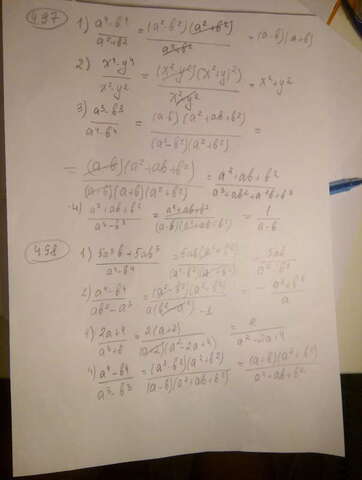 497
1) (a⁴-b⁴)/(a²+b²) = (a²-b²)(a²+b²)/(a²+b²) = (a-b)(a+b)
2) (x⁴-y⁴)/(x²-y²) = (x²-y²)(x²+y²)/(x²-y²) = x²+y²
3) (a³-b³)/(a⁴-b⁴) = (a-b)(a²+ab+b²)/(a²-b²)(a²+b²) =
= (a-b)(a²+ab+b²)/(a-b)(a+b)(a²+b²) = (a²+ab+b²)/(a³+ab²+a²b+b³)
4) (a²+ab+b²)/(a³-b³) = (a²+ab+b²)/(a-b)(a²+ab+b²) = 1/(a-b)
498
1) (5a³b+5ab³)/(a⁴-b⁴) = 5ab(a²+b²)/(a²-b²)(a²+b²) = 5ab/(a²-b²)
2) (a⁴-b⁴)/(ab²-a³) = (a²-b²)(a²+b²)/a(b²-a²)·-1 = -(a²+b²)/a
= 2(a+2)/(a+2)(a²-2a+4) = 2/(a²-2a+4)
4) (a⁴-b⁴)/(a³-b³) = (a²-b²)(a²+b²)/(a-b)(a²+ab+b²) = (a+b)(a²+b²)/(a²+ab+b²)